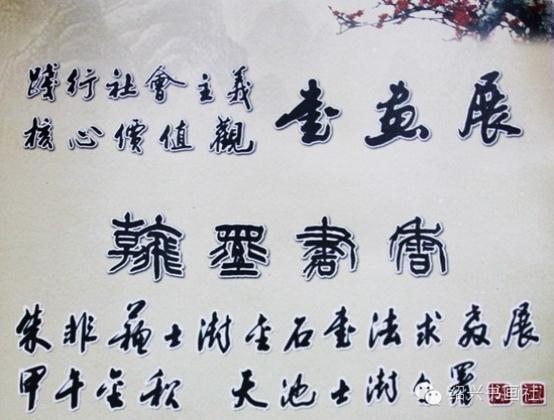 踐行社會主義
核心價值觀
書畫展
翰墨書香
朱非蘇士澍金石書法求教展
甲午金秋 天池士澍
绍兴书画社